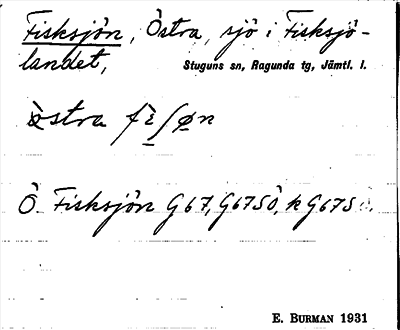 Fisksjön, Östra, sjö i Fisksjö-
landet, Stuguns sn, Ragunda tg, Jämtl. l.
östra
Ö. Fisksjön G67, G67SÖ, kG67SÖ.
E. BURMAN 1931